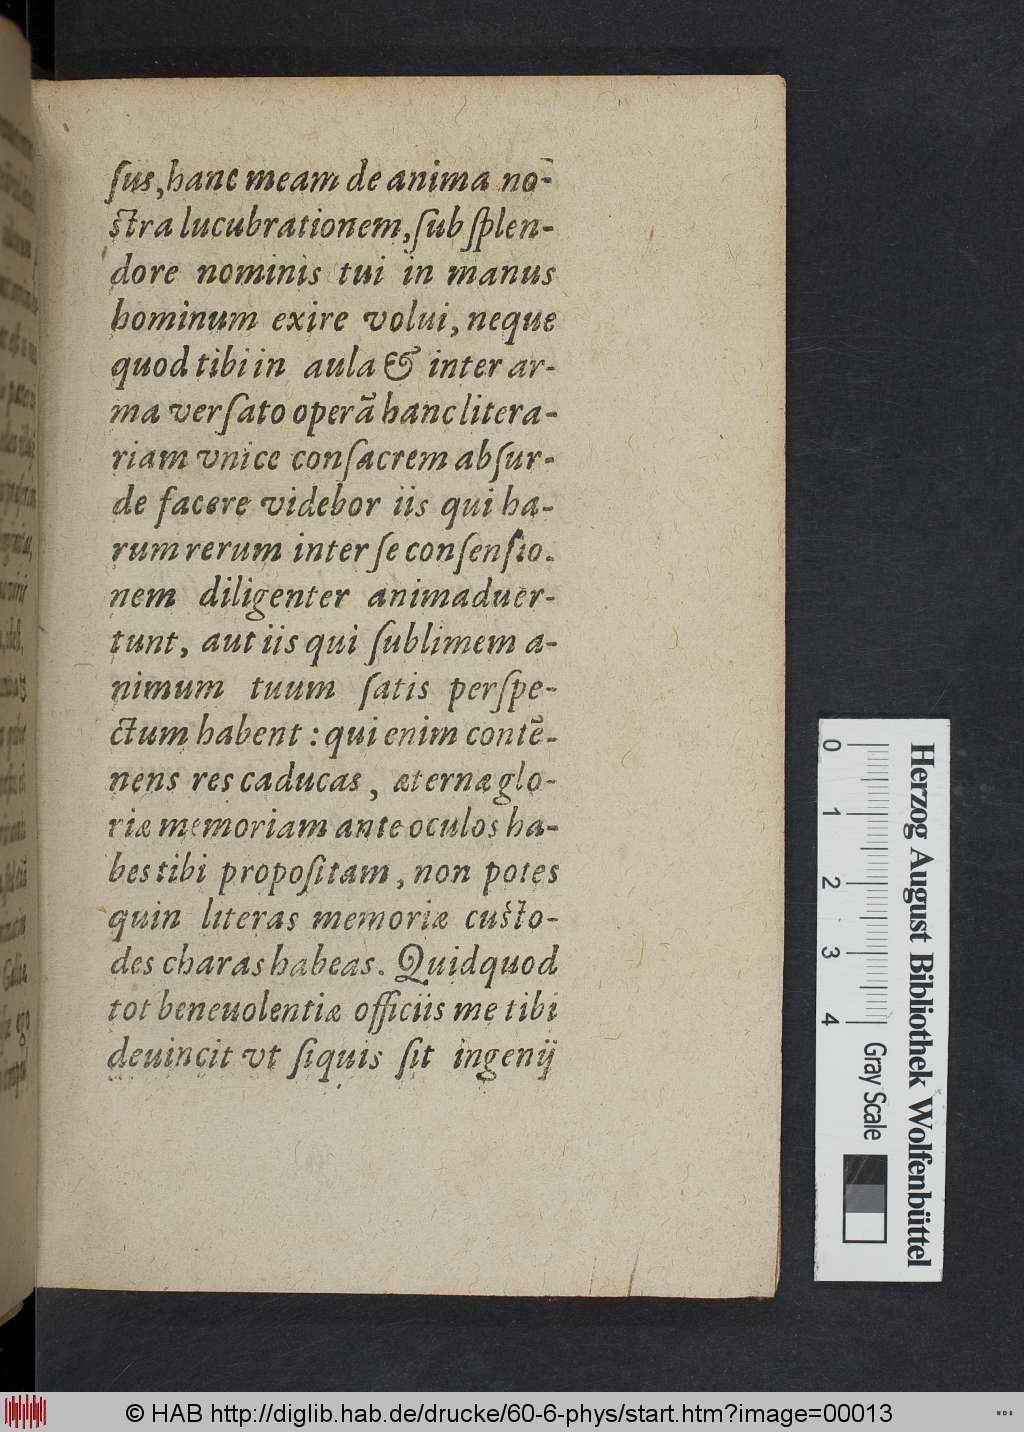 ſus, hanc meam de anima no-
ſtra lucubrationem, ſub ſplen-
dore nominis tui in manus
hominum exire volui, neque
quod tibi in aula & inter ar-
ma verſato operā hanc litera-
riam vnice conſacrem abſur-
de facere videbor iis qui ha-
rum rerum inter ſe conſenſio-
nem diligenter animaduer-
tunt, aut iis qui ſublimem a-
nimum tuum ſatis perſpe-
ctum habent : qui enim contē-
nens res caducas, æternæ glo-
riæ memoriam ante oculos ha-
bes tibi propoſitam, non potes
quin literas memoriæ cuſto-
des charas habeas. Quidquod
tot beneuolentiæ officiis me tibi
deuincit vt ſiquis ſit ingenij
Herzog August Bibliothek Wolfenbüttel
0 1 2 3 4 Gray Scale
© HAB http://diglib.hab.de/drucke/60-6-phys/start.htm?image=00013